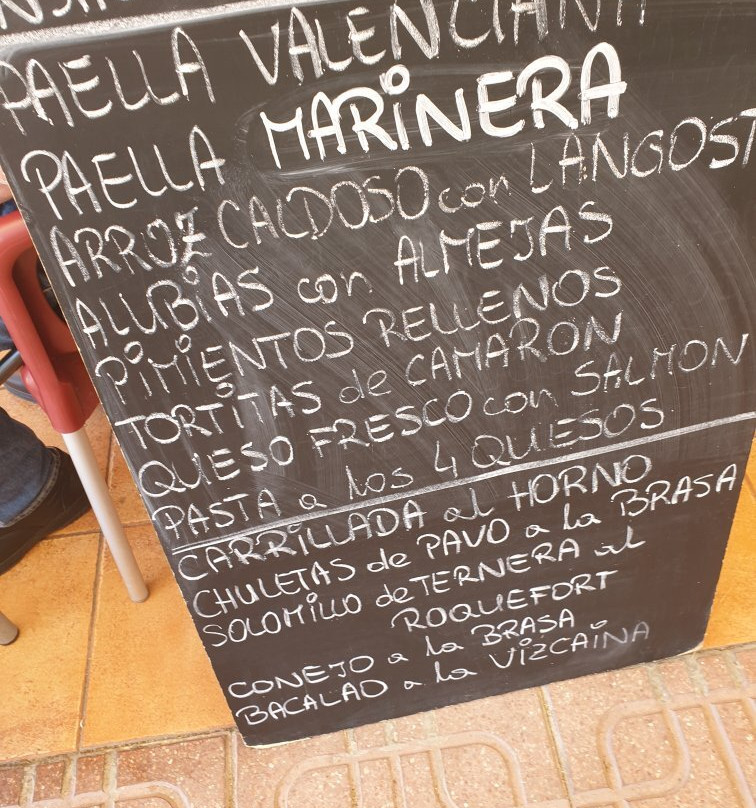 PAELLA VALENCIANA
PAELLA MARINERA
ARROZ CALDOSO con LANGOST
ALUBIAS con ALMEJAS
PIMIENTOS RELLENOS
TORTITAS de CAMARON
QUESO FRESCO con SALMON
PASTA a los 4 QUESOS
CARRILLADA al HORNO
CHULETAS de PAVO a la BRASA
SOLOMILLO de TERNERA al
ROQUEFORT
CONEJO a la BRASA
BACALAO a la VIZCAINA